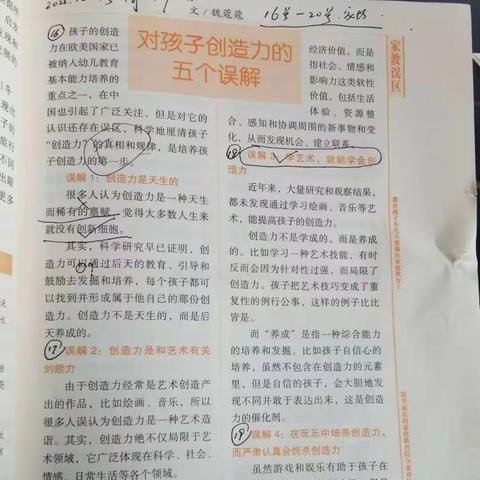 文/魏蔻蔻
16号—20号
对孩子创造力的
五个误解
⑯ 孩子的创造
力在欧美国家已
被纳入幼儿教育
基本能力培养的
重点之一，在中
国也引起了广泛关注，但是对它的
认识还存在误区，科学地厘清孩子
“创造力”的真相和规律，是培养孩
子创造力的第一步。
误解1：创造力是天生的
很多人认为创造力是一种天生
而稀有的禀赋，觉得大多数人生来
就没有创新细胞。
其实，科学研究早已证明，创
造力可以通过后天的教育、引导和
鼓励去发掘和培养，每个孩子都可
以找到并形成属于他自己的那份创
造力。创造力不是天生的，而是后
天养成的。
⑰ 误解2：创造力是和艺术有关
的能力
由于创造力经常是艺术创造产
出的作品，比如绘画、音乐，所以
很多人误认为创造力是一种艺术造
诣。其实，创造力绝不仅局限于艺
术领域，它广泛体现在科学、社会、
情感、日常生活等各个领域。
经济价值，而是
指社会、情感和
影响力这类软性
价值，包括生活
体验、资源整
合、感知和协调周围的新事物和变
化，从而发现机会、建立联系。
⑱ 误解3：学艺术，就能学会创
造力
近年来，大量研究和观察结果，
都未发现通过学习绘画、音乐等艺
术，能提高孩子的创造力。
创造力不是学成的，而是养成
的。比如学习一种艺术技能，有时
反而会因为针对性过强，而局限了
创造力。孩子把艺术技巧变成了重
复性的例行公事，这样的例子比比
皆是。
而“养成”是指一种综合能力
的培养和发掘。比如孩子自信心的
培养，虽然不包含在创造力的元素
里，但是自信的孩子，会大胆地发
现不同并敢于表达出来，这是创造
力的催化剂。
⑲ 误解4：在玩乐中培养创造力，
而严肃认真会扼杀创造力
虽然游戏和娱乐有助于孩子在
家教误区